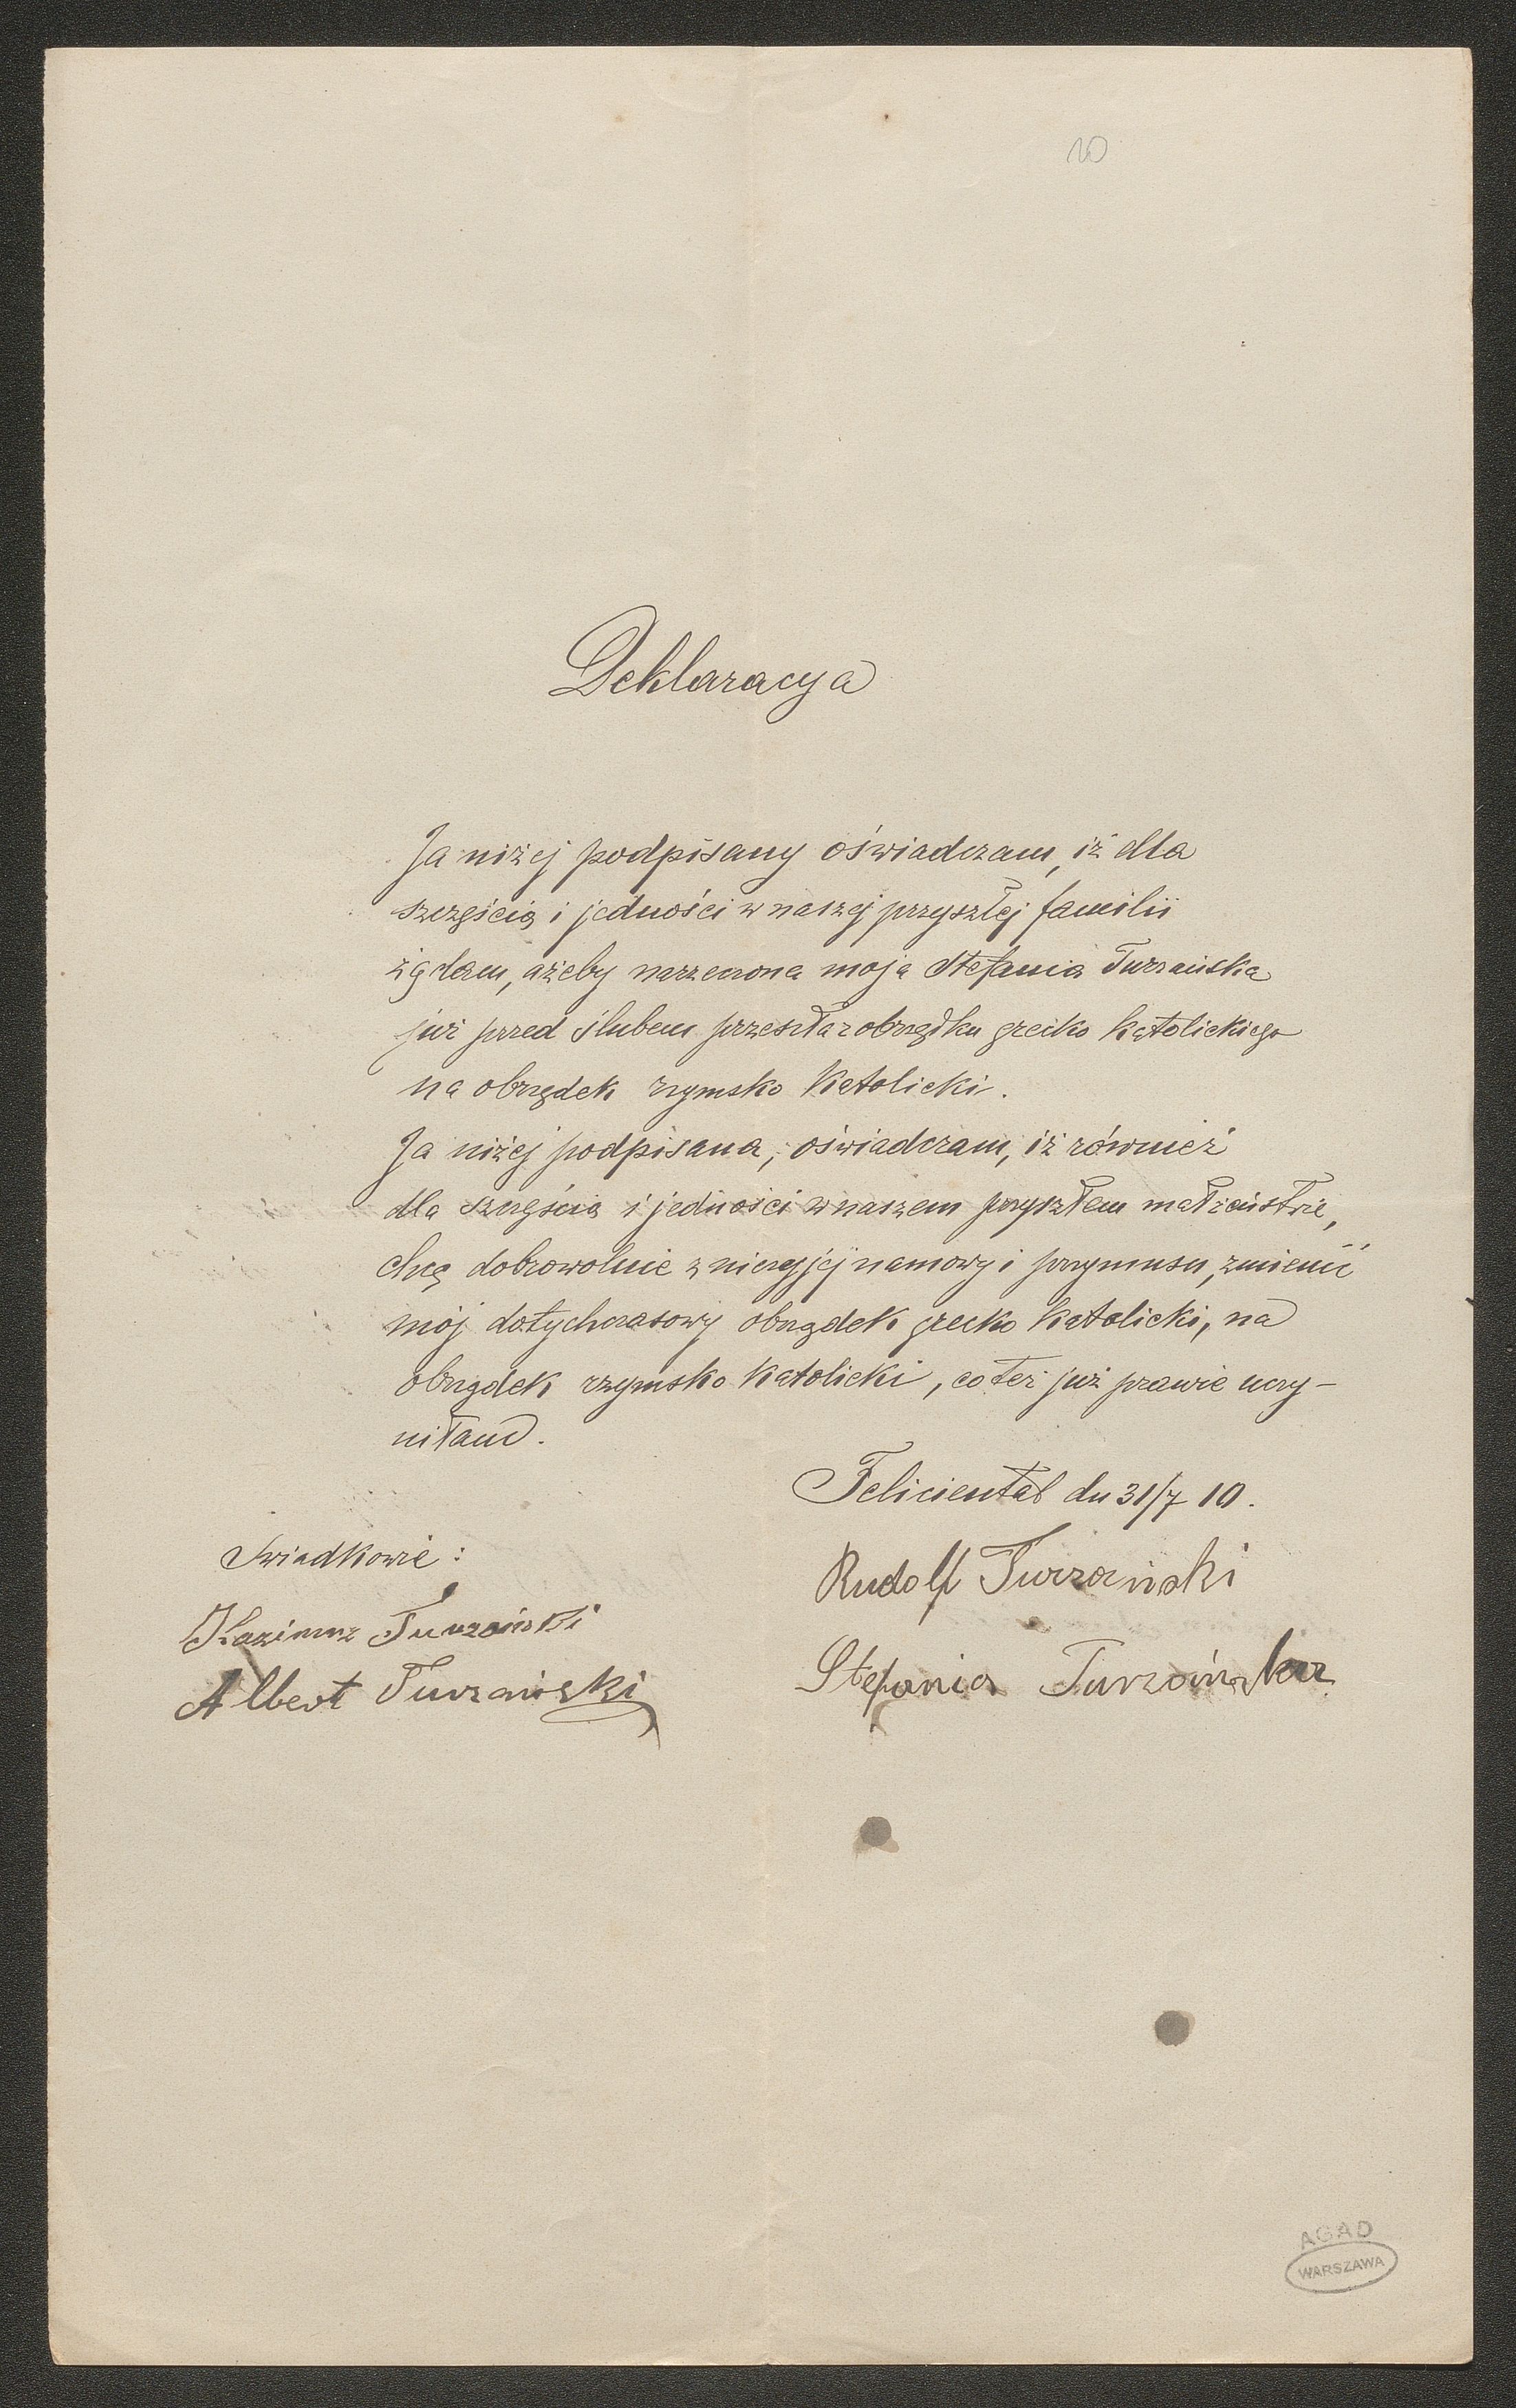 10
Deklaracya
Ja niżej podpisany oświadczam, iż dla
szczęścia i jedności w naszej przyszłej familii
żądam, ażeby narzeczona moja Stefania Turzańska
już przed ślubem przeszła z obrządku grecko katolickiego
na obrządek rzymsko katolicki.
Ja niżej podpisana, oświadczam, iż również
dla szczęścia i jedności w naszem przyszłem małżeństwie,
chcę dobrowolnie z niczyjej namowy i przymusu, zmienić
mój dotychczasowy obrządek grecko katolicki, na
obrządek rzymsko katolicki, co też już prawie uczy-
niłam.
Felicienthal dn 31/7 10.
Świadkowie:
Rudolf Turzański
Kazimirz Turzański
Stefania Turzańska
Albert Turzański
AGAD
WARSZAWA